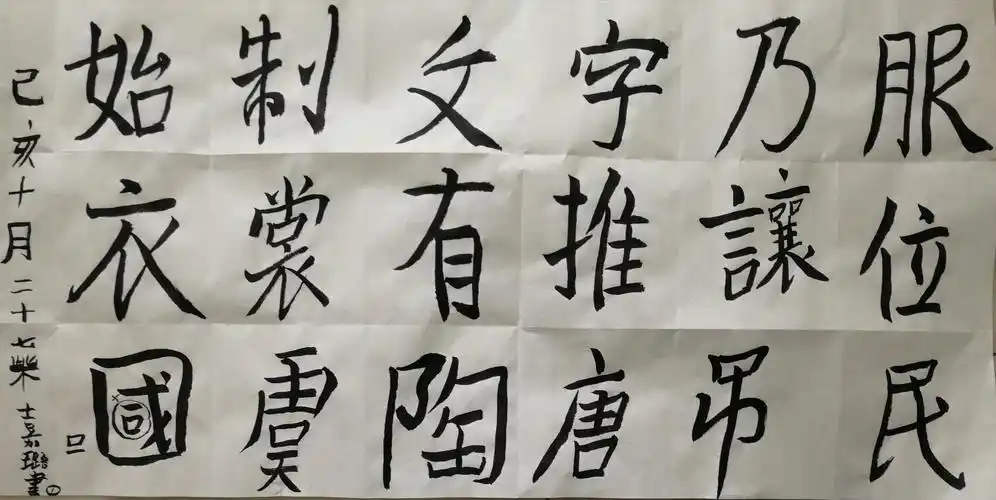 始制文字乃服
衣裳有推讓位
國虞陶唐吊民
己亥十月二十七柴嘉璐書